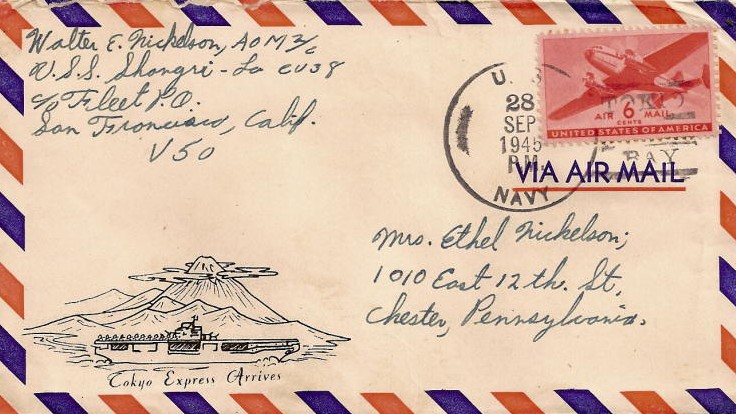 Walter E. Nickelson, AOM 3/c
U.S.S. Shangri-La CV38
c/o Fleet P.O.
San Francisco, Calif.
V50
U. S.
28
SEP
1945
P.M.
NAVY
TOKYO
BAY
AIR 6 MAIL
CENTS
UNITED STATES OF AMERICA
VIA AIR MAIL
Mrs. Ethel Nickelson;
1010 East 12th. St,
Chester, Pennsylvania.
Tokyo Express Arrives